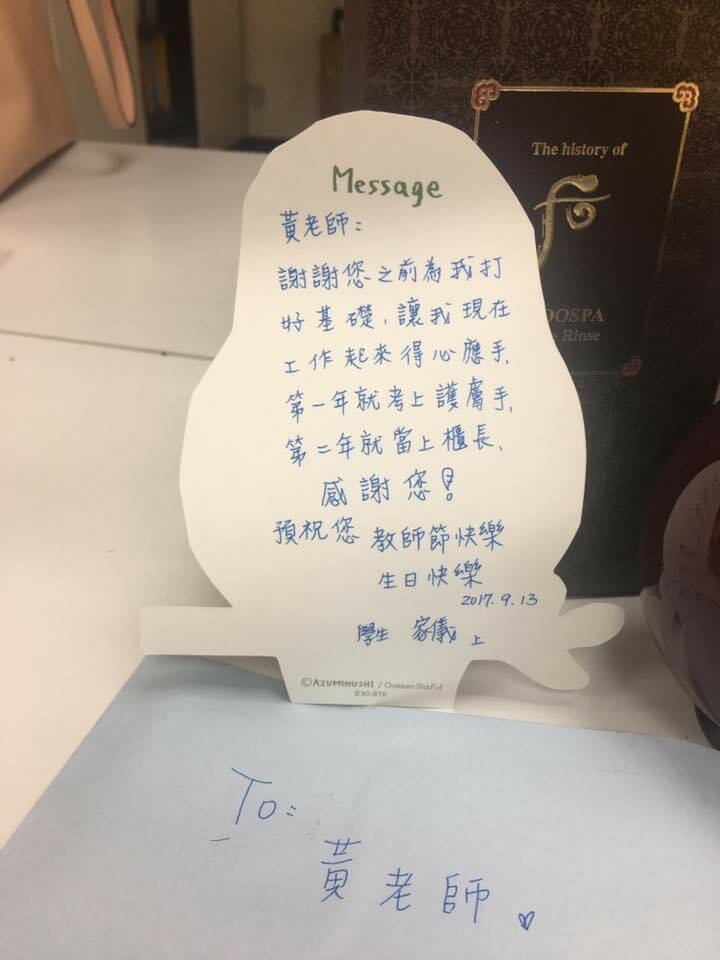 Message
黃老師：
謝謝您之前為我打
好基礎，讓我現在
工作起來得心應手，
第一年就考上護膚手，
第二年就當上櫃長、
感謝您！
預祝您 教師節快樂
生日快樂
2017.9.13
學生 家儀 上
©AZUMIMUSHI / Gakken Sta:Ful
E30-876
To:
黃老師
The history of
Rinse